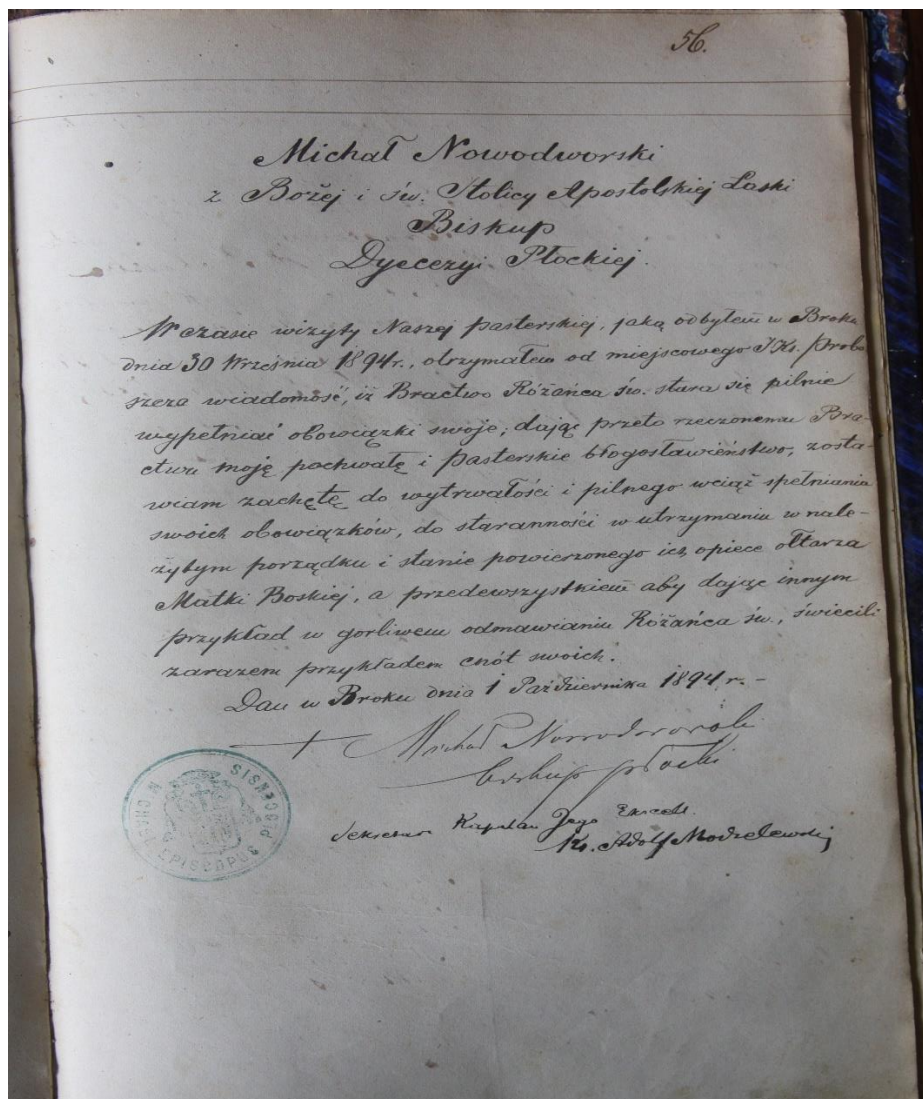 56.
Michał Nowodworski
z Bożej i św. Stolicy Apostolskiej Łaski
Biskup
Dyecezyi Płockiej.
W czasie wizyty Naszej pasterskiej, jaką odbyłem w Broku
dnia 30 Września 1894 r., otrzymałem od miejscowego JKs. Probo
szcza wiadomość, iż Bractwo Różańca św. stara się pilnie
wypełniać obowiązki swoje; dając przeto rzeczonemu Bra-
ctwu moję pochwałę i pasterskie błogosławieństwo, zosta-
wiam zachętę do wytrwałości i pilnego wciąż spełniania
swoich obowiązków, do staranności w utrzymaniu w nale-
żytym porządku i stanie powierzonego ich opiece ołtarza
Matki Boskiej, a przedewszystkiem aby dając innym
przykład w gorliwem odmawianiu Różańca św., świecili
zarazem przykładem cnót swoich.
Dan w Broku dnia 1 Października 1894 r. –
+ Michał Nowodworski
biskup płocki
Sekretarz Kapelan Jego Excell.
Ks. Adolf Modzelewski
EPISCOPUS PLOCENSIS